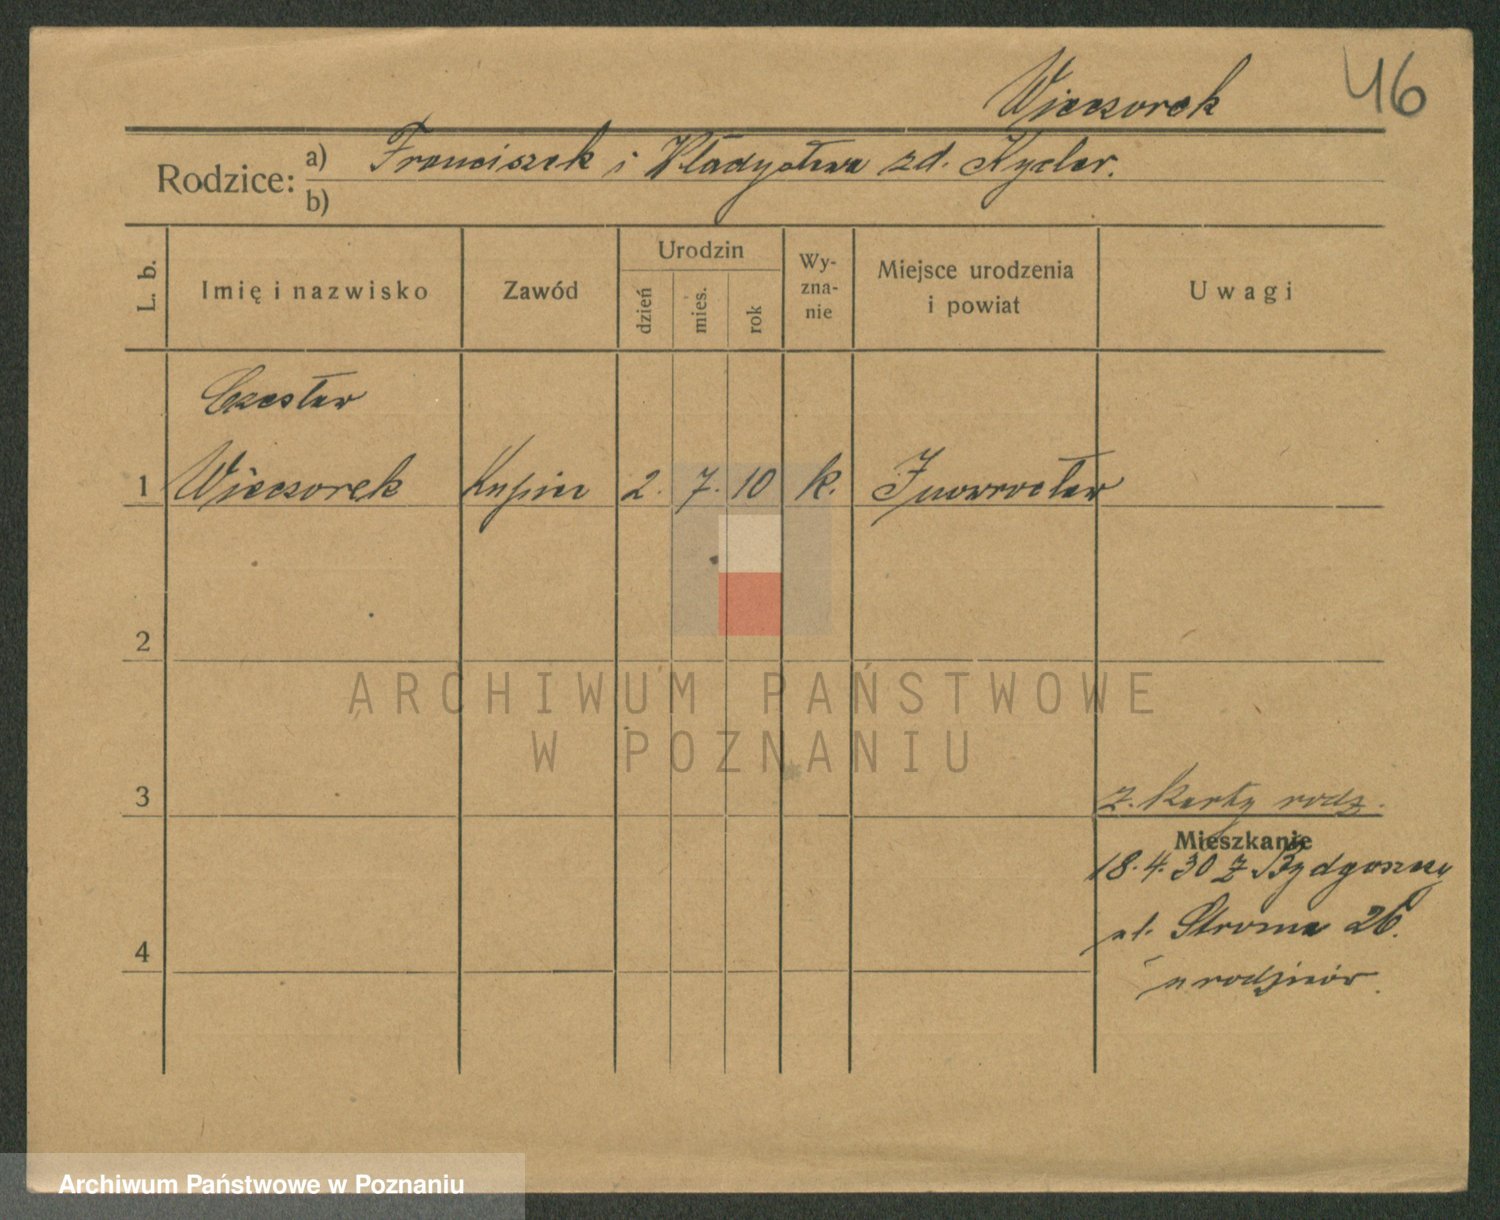 46
Wieczorek
Rodzice: a) Franciszek i Władysława zd. Kycler.
b)
L. b.
Imię i nazwisko
Zawód
Urodzin
dzień
mies.
rok
Wy-
zna-
nie
Miejsce urodzenia
i powiat
Uwagi
Czesław
1 Wieczorek Kupiec 2. 7. 10 k. Inowrocław
2
ARCHIWUM PAŃSTWOWE
W POZNANIU
3
z. karty rodz.
Mieszkanie
18.4.30 z Bydgoszczy
ul. Stroma 26.
4
u rodziców.
Archiwum Państwowe w Poznaniu